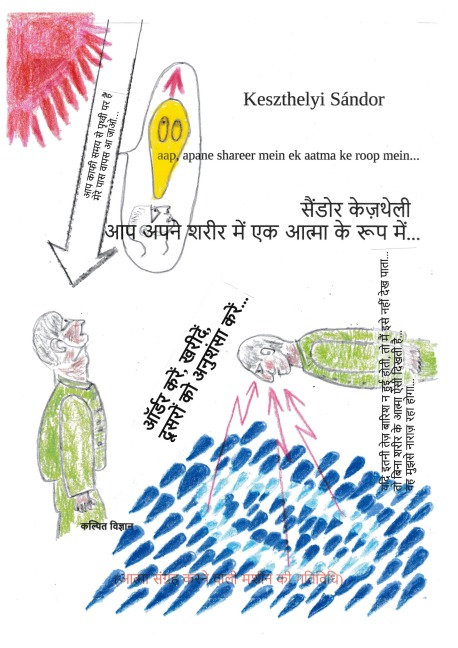 Keszthelyi Sándor
आप काफी समय से पृथ्वी पर हैं
मेरे पास वापस आ जाओ...
aap, apane shareer mein ek aatma ke roop mein...
सैंडोर केज़थेली
आप अपने शरीर में एक आत्मा के रूप में...
ऑर्डर करें, खरीदें,
दूसरों को अनुशंसा करें...
यदि इतनी तेज़ बारिश न हुई होती, तो मैं इसे नहीं देख पाता...
तो बिना शरीर के आत्मा ऐसी दिखती है...
वह मुझसे नाराज़ रहा होगा...
कल्पित विज्ञान
(आत्मा संग्रह करने वाली मशीन की गतिविधि)